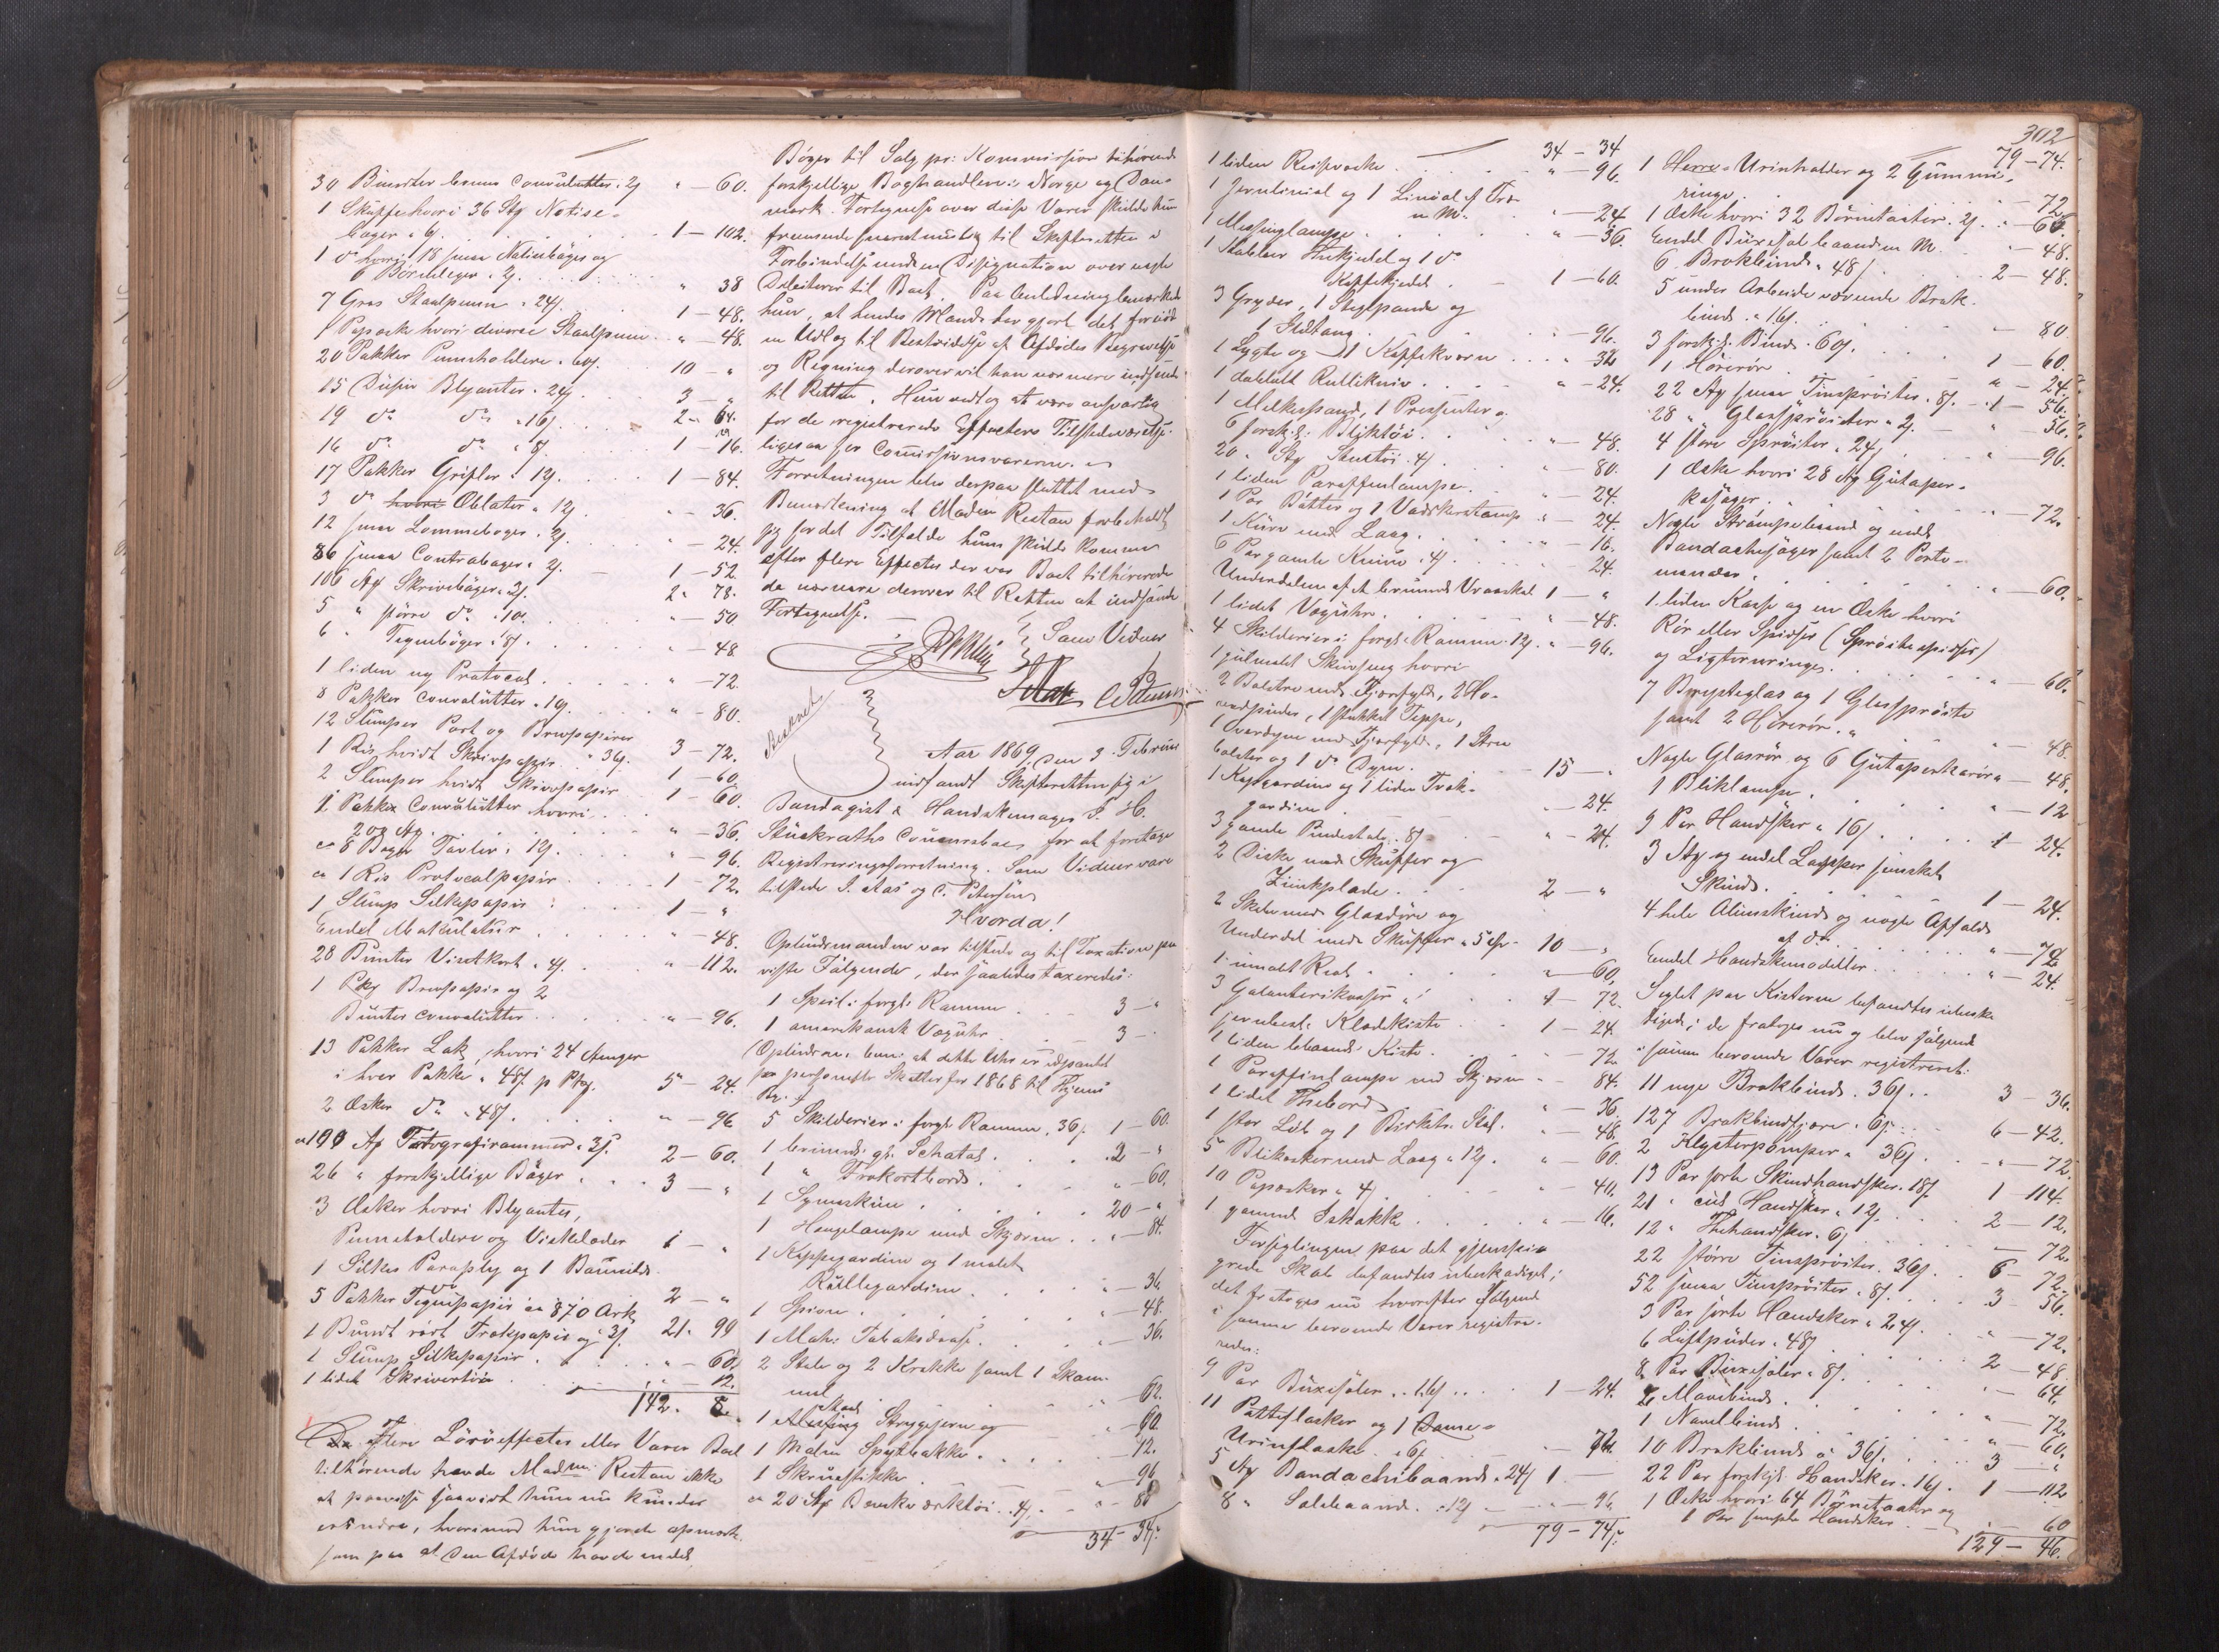 30 Bunter brune Convolutter . 2/ " — 60.
1 Skuffe hvori 36 Stk Notise-
bøger a 6/ 1 — 102.
1 do hvori 18 smaa Notisebøger og
6 Børnebøger . 2/ " 38
7 Gros Staalpenne . 24/ 1 — 48.
1 Papæske hvori diverse Staalpenne " — 48.
20 Pakker Penneholdere . 60/ 10 — "
15 Dusin Blyanter . 24/ 3 — "
19 do do . 16/ 2 — 64.
16 do do . 8/ 1 — 16.
17 Pakker Grifler . 12/ 1 — 84.
3 do hvori Oblater . 12/ " — 36.
12 smaa Lommebøger . 2/ " — 24.
86 smaa Contrabøger . 2/ 1 — 52
106 Stk Skrivebøger . 2/ 2 " 78.
5 " større do . 10. " — 50
6 " Tegnebøger . 8/ " — 48
1 liden ny Protocol " — 72.
8 Pakker Convolutter . 10/ " — 80.
12 Slumper Post og Brevpapirer
. 36/ 3 — 72.
1 Ris hvidt Skrivpapir 1 — 60.
2 Slumper hvidt Skrivpapir 1 — 60.
1 Pakke Convolutter hvori
200 Stk " — 36.
ca 8 Bøger Tavler . 12/ " — 96.
ca 1 Ris Protocolpapir 1 — 72.
1 Slump Silkepapir 1 — "
Endel Makulatur " — 48.
28 Bunter Visitkort . 4/ " 112.
1 Pkg Brevpapir og 2
Bunter Convolutter " — 96.
13 Pakker Lak, hvori 24 Stænger
i hver Pakke . 48/ p Pkg. 5 — 24.
2 Æsker do . 48/ " — 96
ca 100 Stk Fotografirammer . 2/ 2 — 60.
26 " forskjellige Bøger 3 — "
3 Æsker hvori Blyanter,
Penneholdere og Viskelæder 1 — "
1 Silkes Paraply og 1 Bomulds
do 2 — "
5 Pakker Tegnepapir ca 870 Ark
a 2/ 21 " 90
1 Bundt sort Trækpapir og
1 Slump Silkepapir " — 60.
1 lidet Skrivertøi " — 12.
142 . 8.
Flere Løsøreffecter eller Varer Boet
tilhørende havde Madme Restan ikke
at paavise saavidt hun nu kunde
erindre, hvorimod hun gjorde opmærk-
som paa at den Afdøde havde endel
Bøger til Salg pr: Kommission tilhørende
forskjellige Boghandlere i Norge og Dan-
mark. Fortegnelse over disse Varer skulde hun
fremsende snarest muligt til Skifteretten i
Forbindelse med en Designation over nogle
Debitorer til Boet. Paa Anledning bemærkede
hun, at hendes Mand har gjort det fornødne
Udlæg til Bestridelse af Afdødes Begravelse
og Regning derover vil han nærmere indsende
til Retten. Hun vedtog at være ansvarlig
for de registrerede Effecters Tilstedeværelse
ligesaa for Commissionsvarerne.
Forretningen blev derpaa sluttet med
Bemærkning at Madam Restan forbeholdt
sig for det Tilfælde hun skulde komme
efter flere Effecter der var Boet tilhørende
da nærmere derover til Retten at indsende
Fortegnelse.
Som Vidner
S. Aas C. Petersen
Beskrevet
Aar 1869, den 3. Februar
indfandt Skifteretten sig i
Bandagist & Handskemager F. H.
Stuckraths Concursboe, for at foretage
Registreringsforretning. Som Vidner vare
tilstede S. Aas og C. Petersen
Hvorda!
Opbudsmanden var tilstede og til Taxation paa-
viste Følgende, der saaledes taxeredes:
1 Speil i forgt Ramme 3 — "
1 amerikansk Væguhr 3 — "
(Opbudsm. bem. at dette Uhr er udpantet
for personlige Skatter for 1868 til Hjems
5 Skilderier i forgt Ramme . 36/ 1 — 60.
1 brunml. gl. Schatol 2 — "
1 " Frokostbord " — 60.
1 Symaskine 20 — "
1 Hængelampe med Skjærm " — 84.
1 Kappegardin og 1 malet
Rullegardin " — 36
1 Spion " — 48.
1 Mah: Tobaksdaase " — 36.
2 Stole og 2 Krakke samt 1 Skam-
mel " — 62.
1 Messing Strygejern og " — 60.
1 Malm Spyttbakke " — 12.
1 Skruestikke " — 96
ca 20 Stk Snedkerværktøi . 4/ " — 80
34 — 34/:
302
34 — 34
1 liden Reisevæske " — 96.
1 Jernlinial og 1 Linial af Træ
m. M. " — 24
1 Messinglampe " — 36.
1 Kobber Thekjedel og 1 do
Kaffekjedel 1 — 60.
3 Gryder, 1 Stegepande og
1 Ildtang " — 96.
1 Lygte og 1 Kaffekværn " 32
1 dobbelt Rullekniv " — 24.
1 Melkespand, 1 Presenter og
6 forskj: Bliktøi " — 48.
20 Stk Stentøi . 4/ " — 80.
1 liden Paraffinlampe " — 24.
1 Par Bøtter og 1 Vadskestamp " — 24.
1 Kurv med Laag " — 16.
6 Par gamle Knive . 4/ 24.
Underdelen af et brunmlt Vraaskab 1 — "
1 lidet Væguhr " — 48.
4 Skilderier i forgt: Ramme . 12/ " — 96.
1 gulmalet Skuvseng hvori
2 Bolstre med Fjærfyld, 2 Ho-
vedpuder, 1 stukket Teppe,
1 Overdyne med Fjærfyld, 1 Stræ
bolster og 1 do Dyne 15 — "
1 Kapgardine og 1 liden Træk-
gardin " — 24.
3 gamle Pindestole . 8/ " — 24.
2 Diske med Skuffer og
Zinkplade 2 — "
2 Skabe med Glasdøre og
Underdel med Skuffer . 5 Spd 10 — "
1 umalet Skab " — 60,
3 Galanterikasser 1 — 72
1 jernbesl: Klædekiste 1 — 24.
1 liden beboend: Kiste " — 72
1 Paraffinlampe med Skjærm " — 84.
1 lidet Thebord " — 36.
1 stor Løb og 1 Birketr. Stol " — 48.
5 Blikæsker med Laag . 12/ " — 60.
10 Papæsker . 4/ " — 40.
1 gammel Schakk " — 16.
Forseglingen paa det gjenspi-
grede Skab befandtes ubeskadiget;
det fratoges nu hvorefter følgende
i samme beroende Varer registre-
redes:
9 Par Buxeseler . 16/ 1 — 24.
11 Patteflasker og 1 Dame-
Urinflaske . 6/ " — 72.
5 Stk Bandachebaand . 24/ 1 —
8 " Solebaand . 12/ " — 96.
79 — 74/:
79 — 74.
1 Herre-Urinholder og 2 Gummi-
ringe " — 72
1 Æske hvori 32 Børnetaater . 2/ " — 66.
Endel Buxeselebaand m. M. " — 48.
6 Brokbind . 48/ 2 — 48.
5 under Arbeide værende Brok-
bind . 16/ " — 80.
3 forskj. Bind . 60/ 1 — 60.
1 Hørerør " — 24.
22 Stk smaa Tinsprøiter . 8/ 1 — 56.
28 " Glassprøiter . 2/ " 56.
4 store Sprøiter . 24/ " — 96.
1 Æske hvori 28 Stk Gutaper-
kasager " — 72.
Nogle Strømpebaand og endel
Bandachesager samt 2 Porte-
monæer " — 60.
1 liden Kasse og en Æske hvori
Rør eller Spidser (Sprøitespidser)
og Ligtornringe " — 60.
7 Brysteglas og 1 Glassprøite
samt 2 Hørerør " — 48.
Nogle Glasrør og 6 Gutaperkarør " — 48.
1 Bliklampe " 12
9 Par Handsker a 16/ 1 — 24.
3 Stk og endel Lapper semsket
Skind 1 — 24.
4 hele Alunskind og nogle Affald
af do " — 72
Endel Handskemodeller " — 24.
Seglet paa Kisterne befandtes ubeska-
diget; de fratoges nu og blev følgende
i samme beroende Varer registreret:
11 nye Brokbind . 36/ 3 — 36.
127 Brokbindfjære . 6/ 6 — 42.
2 Klysterpomper . 36/ " — 72.
13 Par sorte Skindhandsker . 18/ 1 — 114.
21 " Handsker . 12/ 2 — 12.
12 " Handsker . 6/ " — 72.
22 større Tinsprøiter . 36/ 6 — 72.
52 smaa Tinsprøiter . 8/ 3 — 56.
3 Par sorte Handsker . 24/ " — 72.
6 Luftpuder . 48/ 2 — 48
8 Par Buxeseler . 8/ " — 64.
2 Mavebind " — 72.
1 Navelbind " — 60.
10 Brokbind a 36/ 3 — "
22 Par forskj. Handsker . 16/ 1 — 112
1 Æske hvori 64 Børnetaater og
1 Par simple Handsker " — 60
129 — 46.